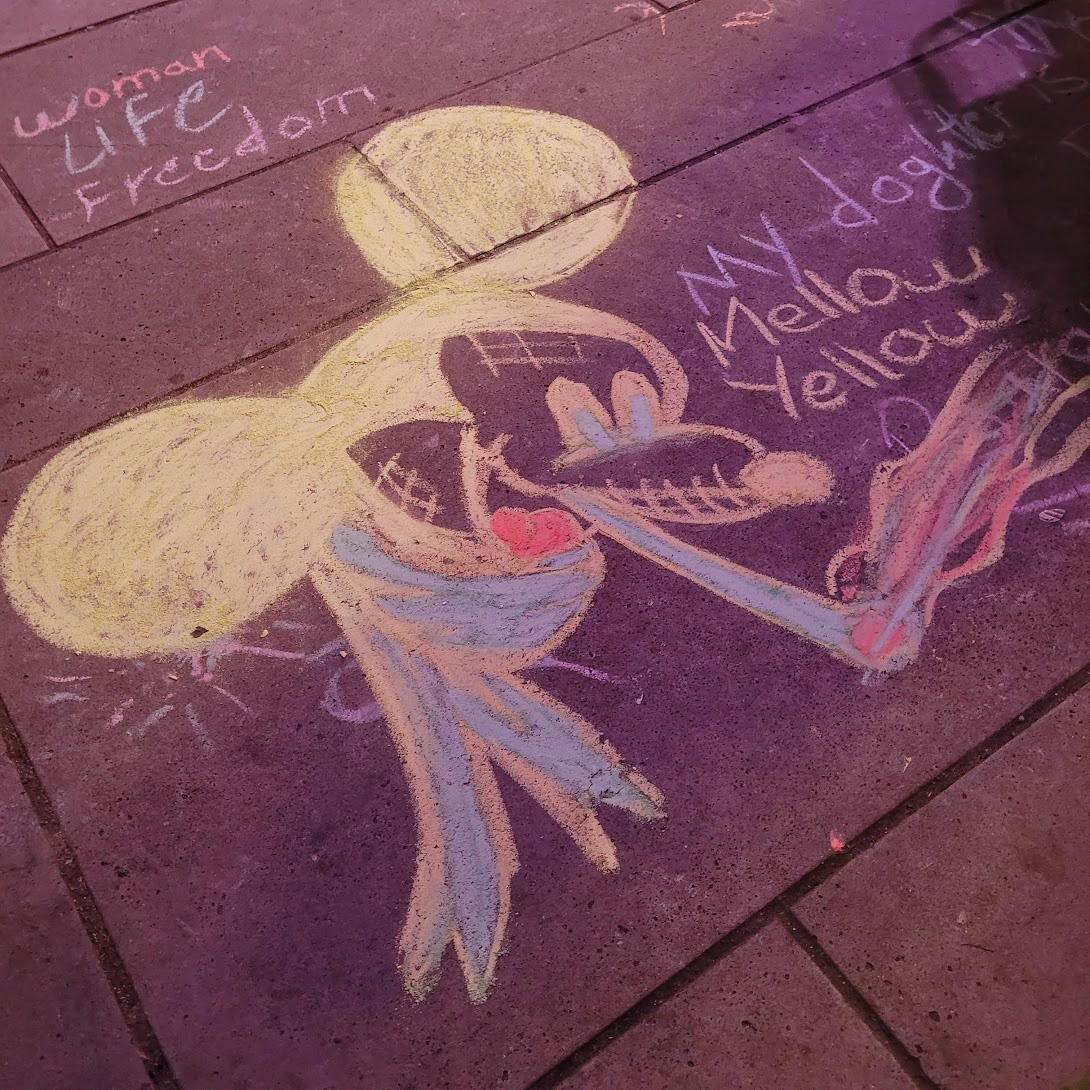 woman
LIFE
Freedom
My doghter is
Mellow
Yellow